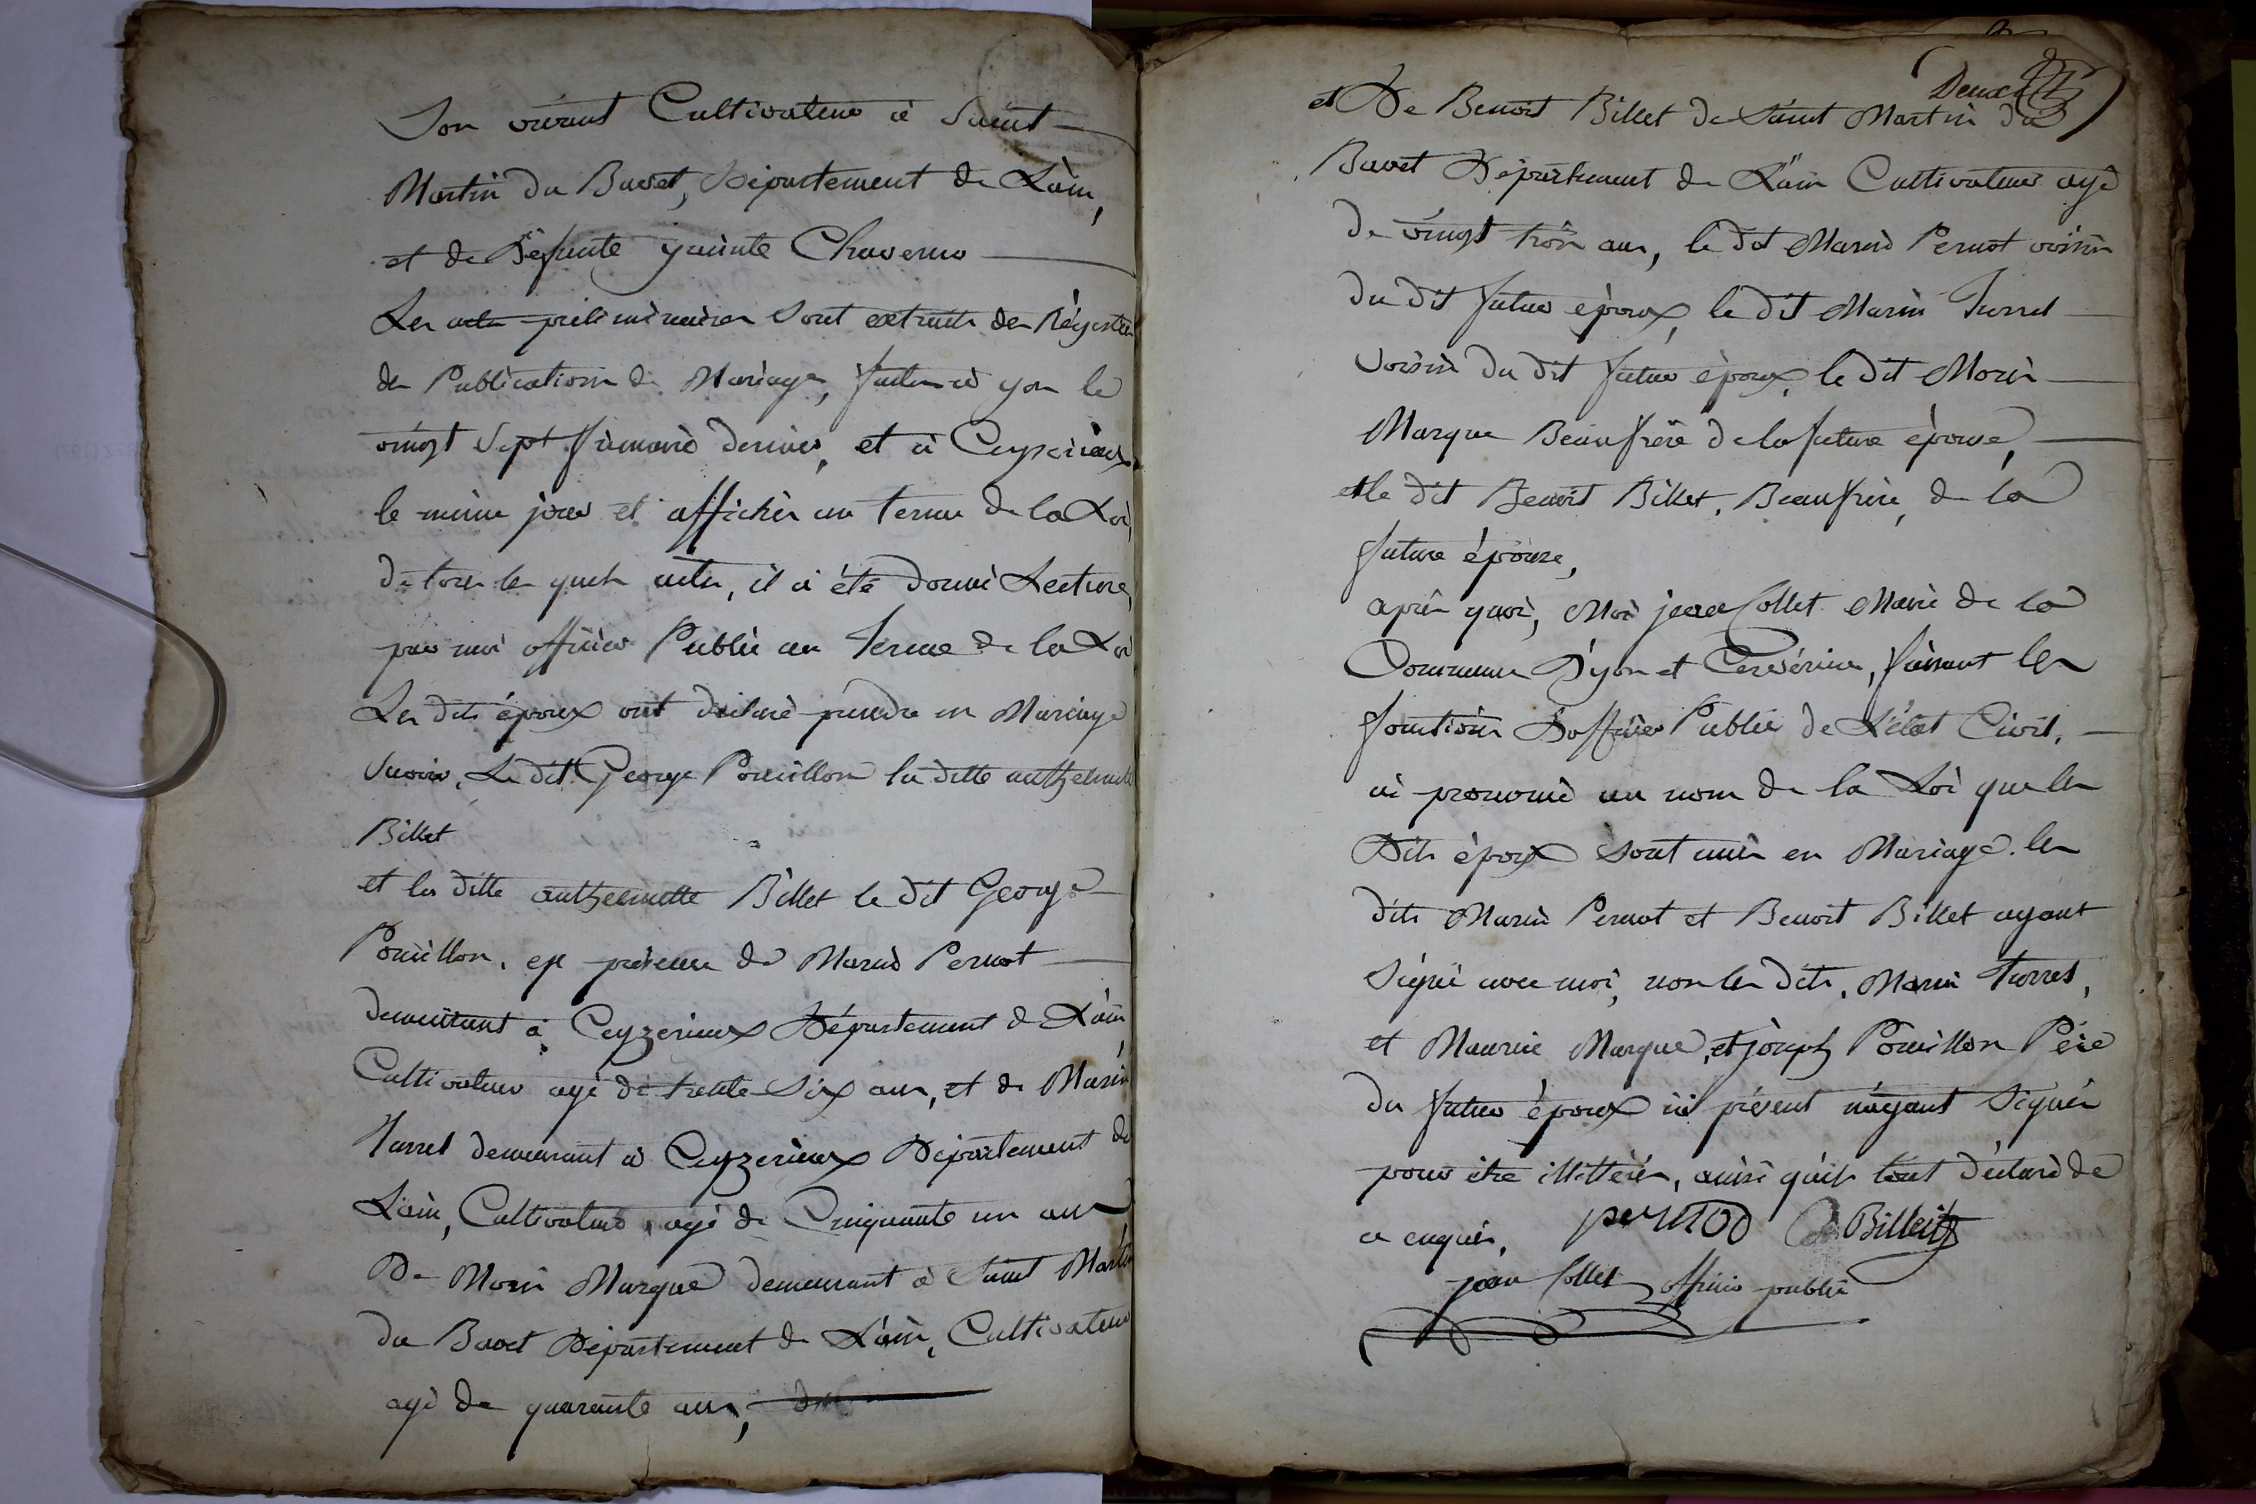 Son vivant Cultivateur à Saint
Martin du Bavet, Département de L'ain,
et de Défunte yacinte Chaverno
Les actes préliminaires sont extraits des Régistres
des Publications de Mariage, faites à yon le
vingt sept frimaire dernier, et à Ceyzérieux
le même jour et affichés au terme de la Loi,
de tous les quels actes, il a été donné Lecture,
par moi officier Public au Terme de la Loi
Les dits époux ont déclaré prendre en Mariage
savoir, Le dit George Pouillon la ditte anthelmette
Billet
et la ditte anthelmette Billet le dit George
Pouillon, en présence de Marin Pernot
demeurant à Ceyzerieux Département de L'ain,
Cultivateur agé de trente six ans, et de Marin
Turrel demeurant à Ceyzerieux Département de
L'ain, Cultivateur agé de Cinquante un ans
De Morin Marque demeurant à Saint Martin
du Bavet Département de L'ain, Cultivateur
agé de quarante ans,
Deux
et De Benoit Billet de Saint Martin du
Bavet Département de L'ain Cultivateur agé
de vingt trois ans, le dit Marin Pernot voisin
du dit futur époux, le dit Marin Turrel
Voisin du dit futur époux, le dit Morin
Marque Beaufrère de la future épouse,
et le dit Benoit Billet, Beaufrère, de la
future épouse,
après quoi, Moi jean Collet Maire de la
Commune D'yon et Cerverieu, faisant les
fonctions D'officier Public de L'état Civil,
ai prononcé au nom de la Loi que les
Dits époux sont unis en Mariage. les
dits Marin Pernot et Benoit Billet ayant
Signé avec moi, non les dits, Marin Turrel,
et Maurice Marque, et joseph Pouillon Père
du futur époux ici présent n'ayant Signés
pour être illittérés, ainsi qu'ils l'ont déclaré de
ce enquis,
pernod Billeit
jean Collet officier public